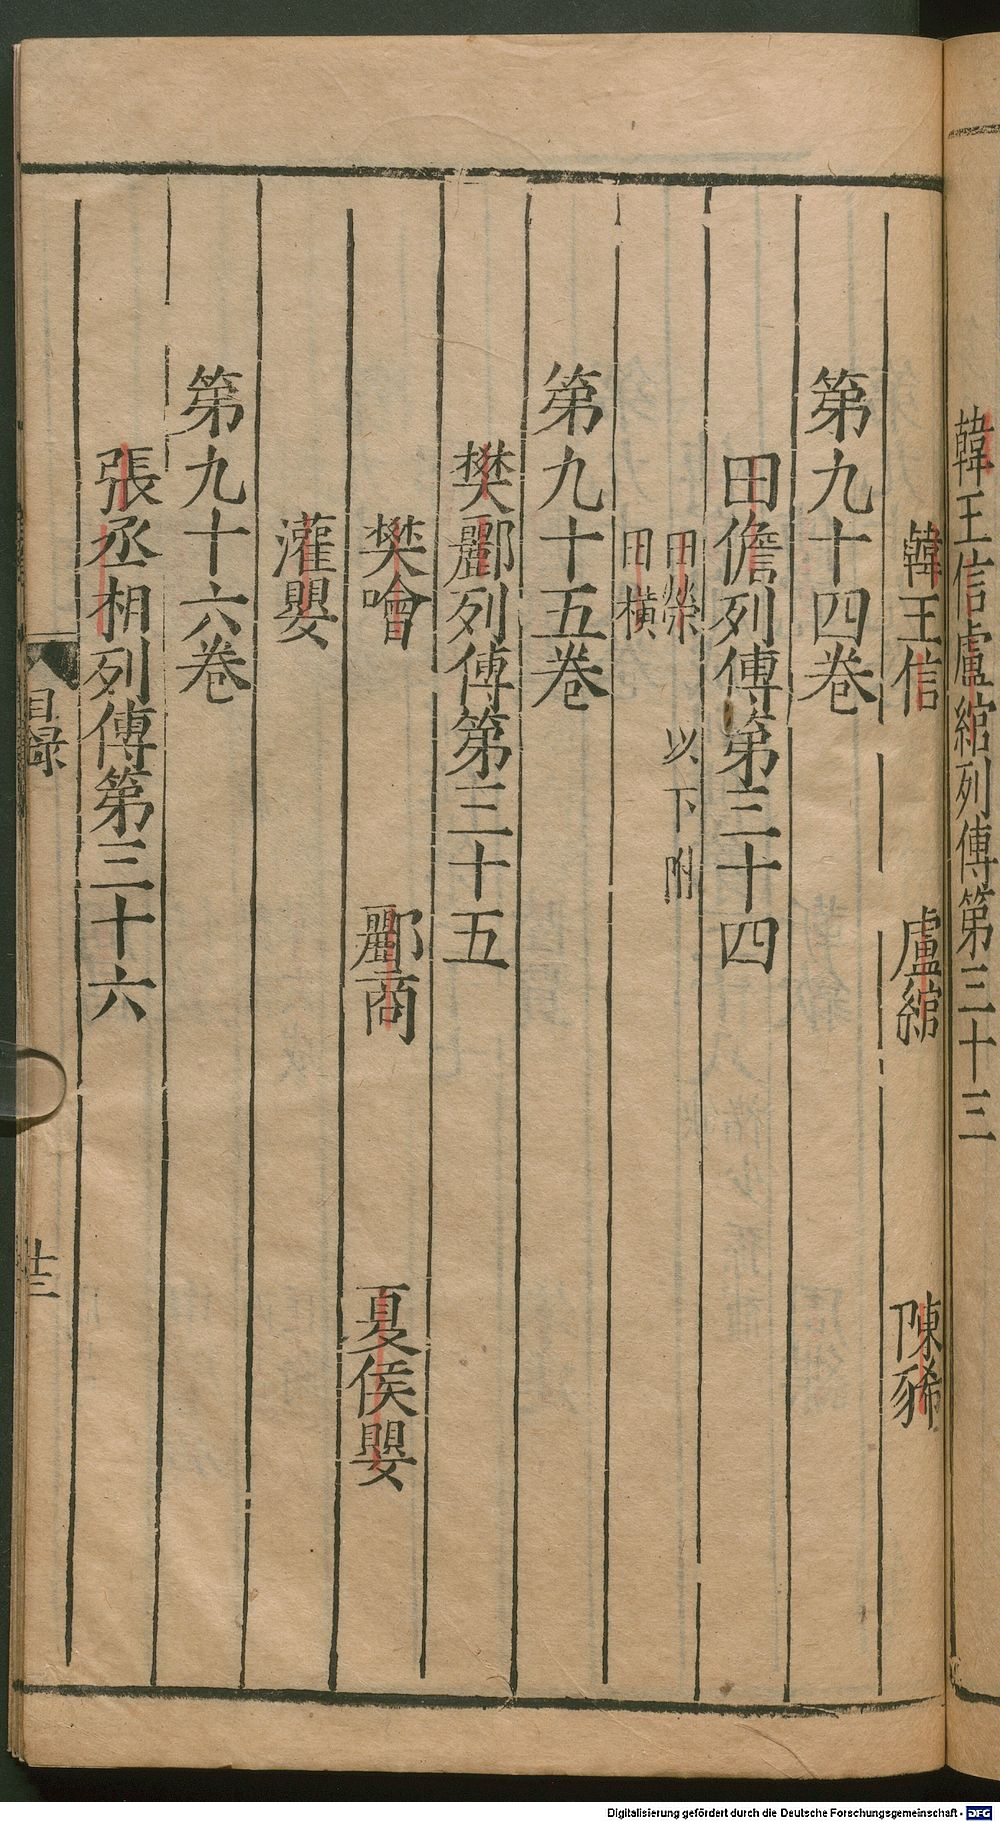 韓王信盧綰列傳第三十三
韓王信　盧綰　陳豨
第九十四卷
田儋列傳第三十四
田榮　以下附
田橫
第九十五卷
樊酈列傳第三十五
樊噲　酈商　夏侯嬰
灌嬰
第九十六卷
張丞相列傳第三十六
目録
廿三
Digitalisierung gefördert durch die Deutsche Forschungsgemeinschaft - DFG